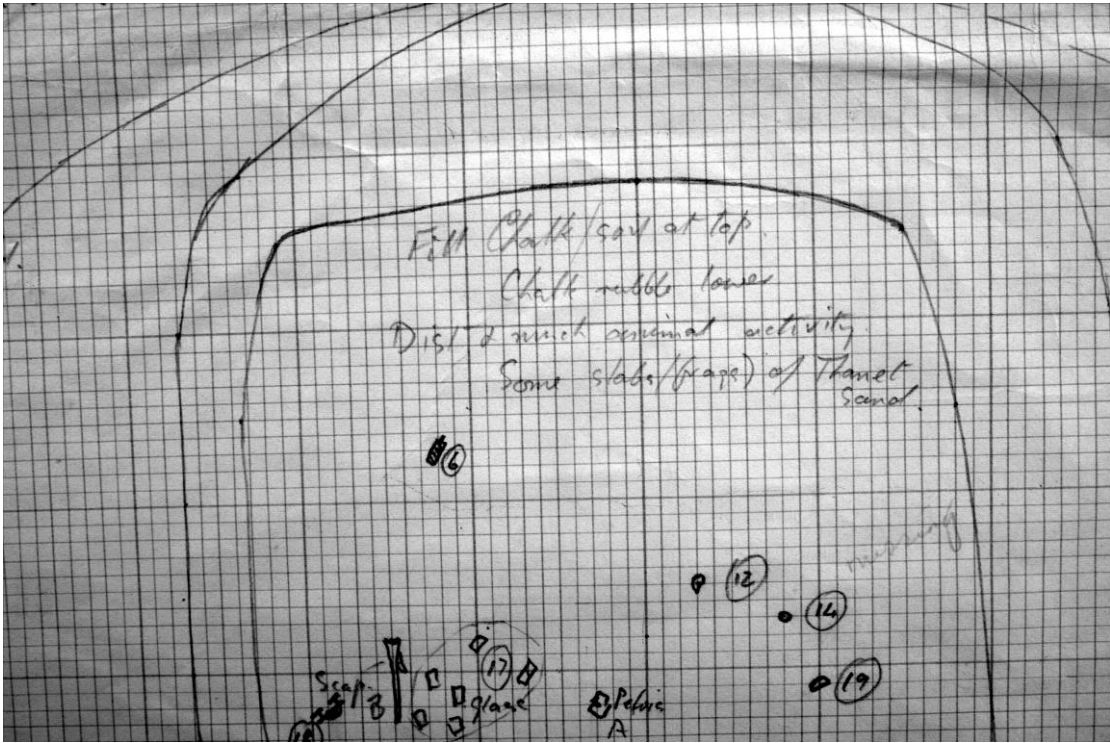 Fill Chalk/soil at top.
Chalk rubble lower
Dist. & much animal activity.
Some slabs/(frags) of Thanet
Sand.
6
missing
12
14
17
Scap.
B
glass
Pelvis
A
19
18